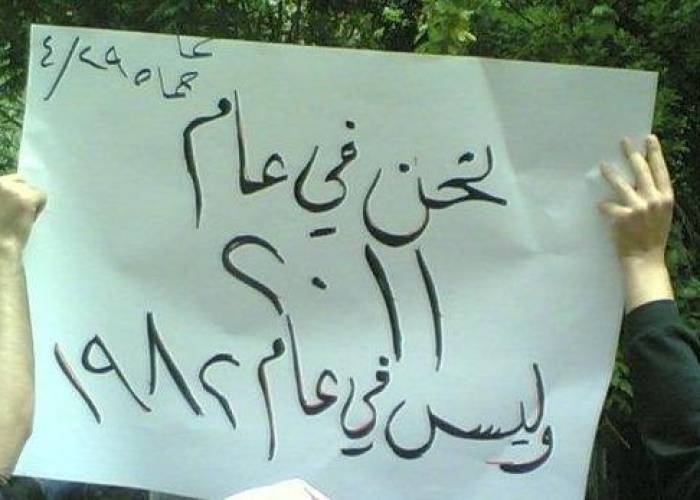 حماه ٤/٢٩
نحن في عام
٢٠١١
وليس في عام ١٩٨٢